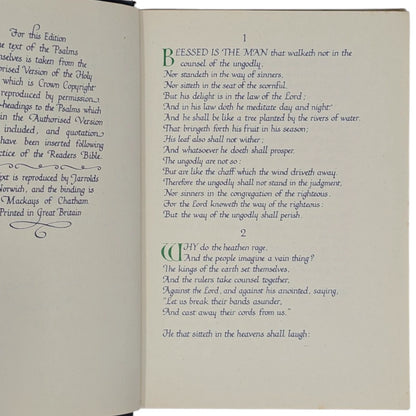 For this Edition
the text of the Psalms
themselves is taken from the
Authorised Version of the Holy
which is Crown Copyright
reproduced by permission
-headings to the Psalms which
in the Authorised Version
included, and quotation
have been inserted following
practice of the Readers Bible.
text is reproduced by Jarrolds
Norwich, and the binding is
Mackays of Chatham
Printed in Great Britain
1
BLESSED IS THE MAN that walketh not in the
counsel of the ungodly,
Nor standeth in the way of sinners,
Nor sitteth in the seat of the scornful.
But his delight is in the law of the Lord;
And in his law doth he meditate day and night
And he shall be like a tree planted by the rivers of water.
That bringeth forth his fruit in his season;
His leaf also shall not wither;
And whatsoever he doeth shall prosper.
The ungodly are not so:
But are like the chaff which the wind driveth away.
Therefore the ungodly shall not stand in the judgment,
Nor sinners in the congregation of the righteous.
For the Lord knoweth the way of the righteous:
But the way of the ungodly shall perish.
2
WHY do the heathen rage,
And the people imagine a vain thing?
The kings of the earth set themselves,
And the rulers take counsel together,
Against the Lord, and against his anointed, saying,
"Let us break their bands asunder,
And cast away their cords from us."
He that sitteth in the heavens shall laugh: